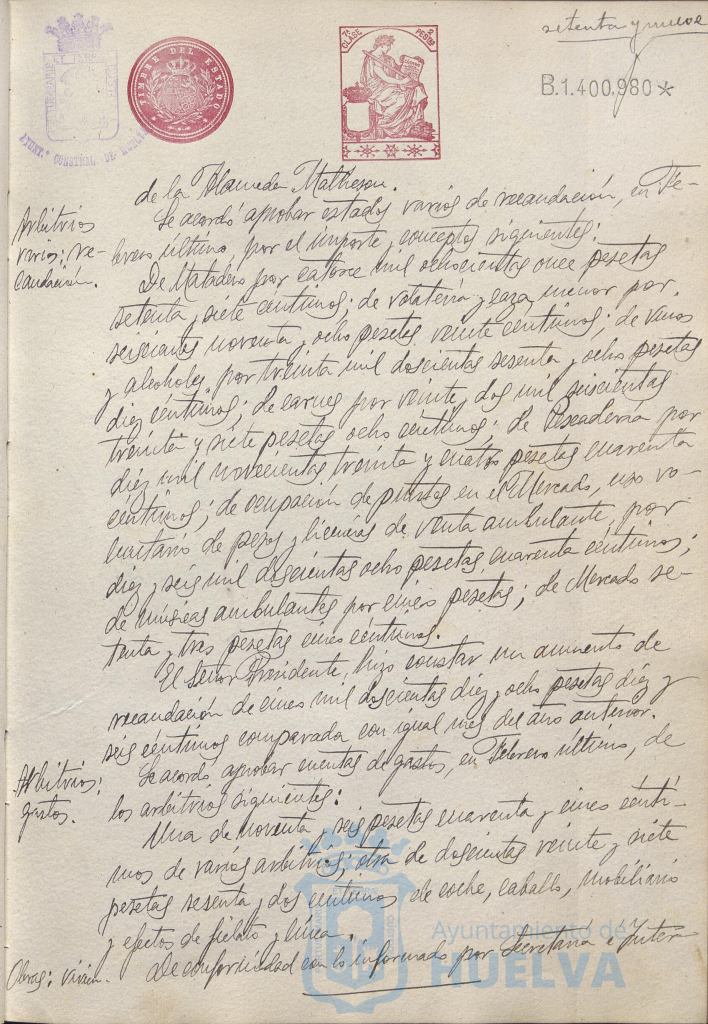 setenta y nueve
B.1.400.980*
TIMBRE DEL ESTADO
7ª CLASE 2 PESETAS
AYUNTº CONSTNAL DE HUELVA
de la Alameda Mathesson.
Arbitrios varios: recaudación.
Se acordó aprobar estados varios de recaudación, en Fe-
brero último, por el importe y conceptos siguientes:
De Matadero por catorce mil ochocientas once pesetas
setenta y siete céntimos; de volatería y caza menor por
seiscientas noventa y ocho pesetas veinte céntimos; de vinos
y alcoholes, por treinta mil doscientas sesenta y ocho pesetas
diez céntimos; de carnes por veinte y dos mil seiscientas
treinta y siete pesetas ocho céntimos; de Pescadería por
diez mil novecientas treinta y cuatro pesetas cuarenta
céntimos; de ocupación de puestos en el Mercado, uso vo-
luntario de pesos y licencias de venta ambulante, por
diez y seis mil doscientas ocho pesetas cuarenta céntimos;
de músicas ambulantes por cinco pesetas; de Mercado se-
tenta y tres pesetas cinco céntimos.
El Señor Presidente, hizo constar un aumento de
recaudación de cinco mil doscientas diez y ocho pesetas diez y
seis céntimos comparada con igual mes del año anterior.
Arbitrios: gastos.
Se acordó aprobar cuentas de gastos, en Febrero último, de
los arbitrios siguientes:
Una de noventa y seis pesetas cuarenta y cinco cénti-
mos de varios arbitrios; otra de doscientas veinte y siete
pesetas sesenta y dos céntimos de coche, caballo, mobiliario
y efectos de fielato y línea.
Obras:
De conformidad con lo informado por Secretaría e Inter
Ayuntamiento de
HUELVA